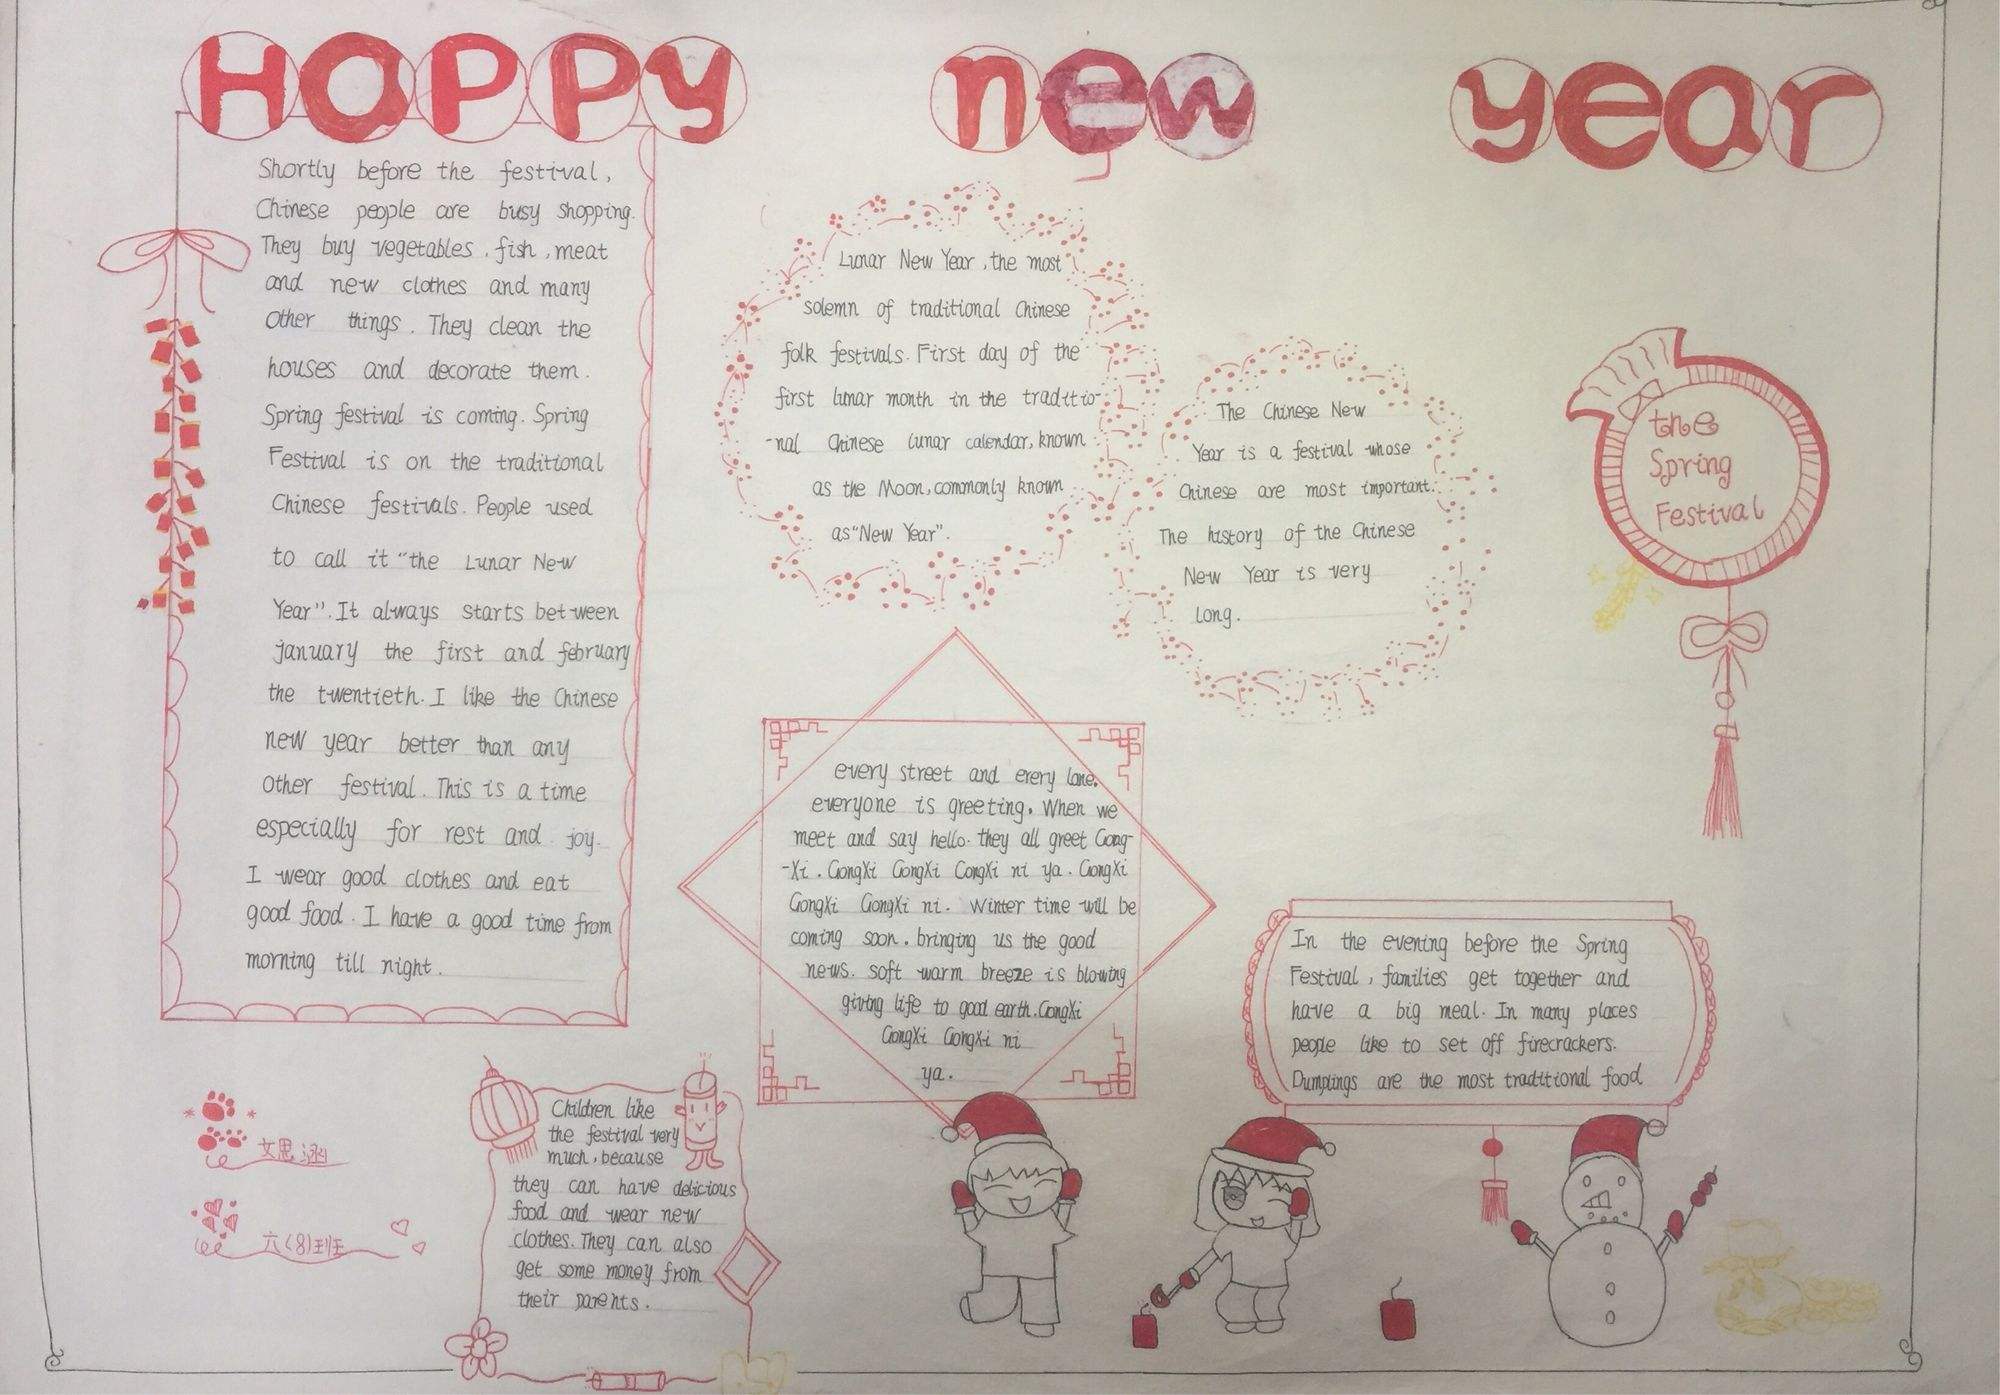 Happy new year
Shortly before the festival,
Chinese people are busy shopping.
They buy vegetables, fish, meat
and new clothes and many
other things. They clean the
houses and decorate them.
Spring festival is coming. Spring
Festival is on the traditional
Chinese festivals. People used
to call it "the Lunar New
Year". It always starts between
january the first and february
the twentieth. I like the Chinese
new year better than any
other festival. This is a time
especially for rest and joy.
I wear good clothes and eat
good food. I have a good time from
morning till night.
Lunar New Year, the most
solemn of traditional Chinese
folk festivals. First day of the
first lunar month in the traditio-
-nal Chinese lunar calendar, known
as the Moon, commonly known
as "New Year".
The Chinese New
Year is a festival whose
Chinese are most important.
The history of the Chinese
New Year is very
long.
the
Spring
Festival
every street and erery lane.
everyone is greeting. When we
meet and say hello. they all greet Gong-
-Xi. GongXi GongXi CongXi ni ya. GongXi
GongXi GongXi ni. Winter time will be
coming soon. bringing us the good
news. soft warm breeze is blowing
giving life to good earth. GongXi
GongXi GongXi ni
ya.
In the evening before the Spring
Festival, families get together and
have a big meal. In many places
people like to set off firecrackers.
Dumplings are the most traditional food
Children like
the festival very
much, because
they can have delicious
food and wear new
clothes. They can also
get some money from
their parents.
文思涵
六(8)班